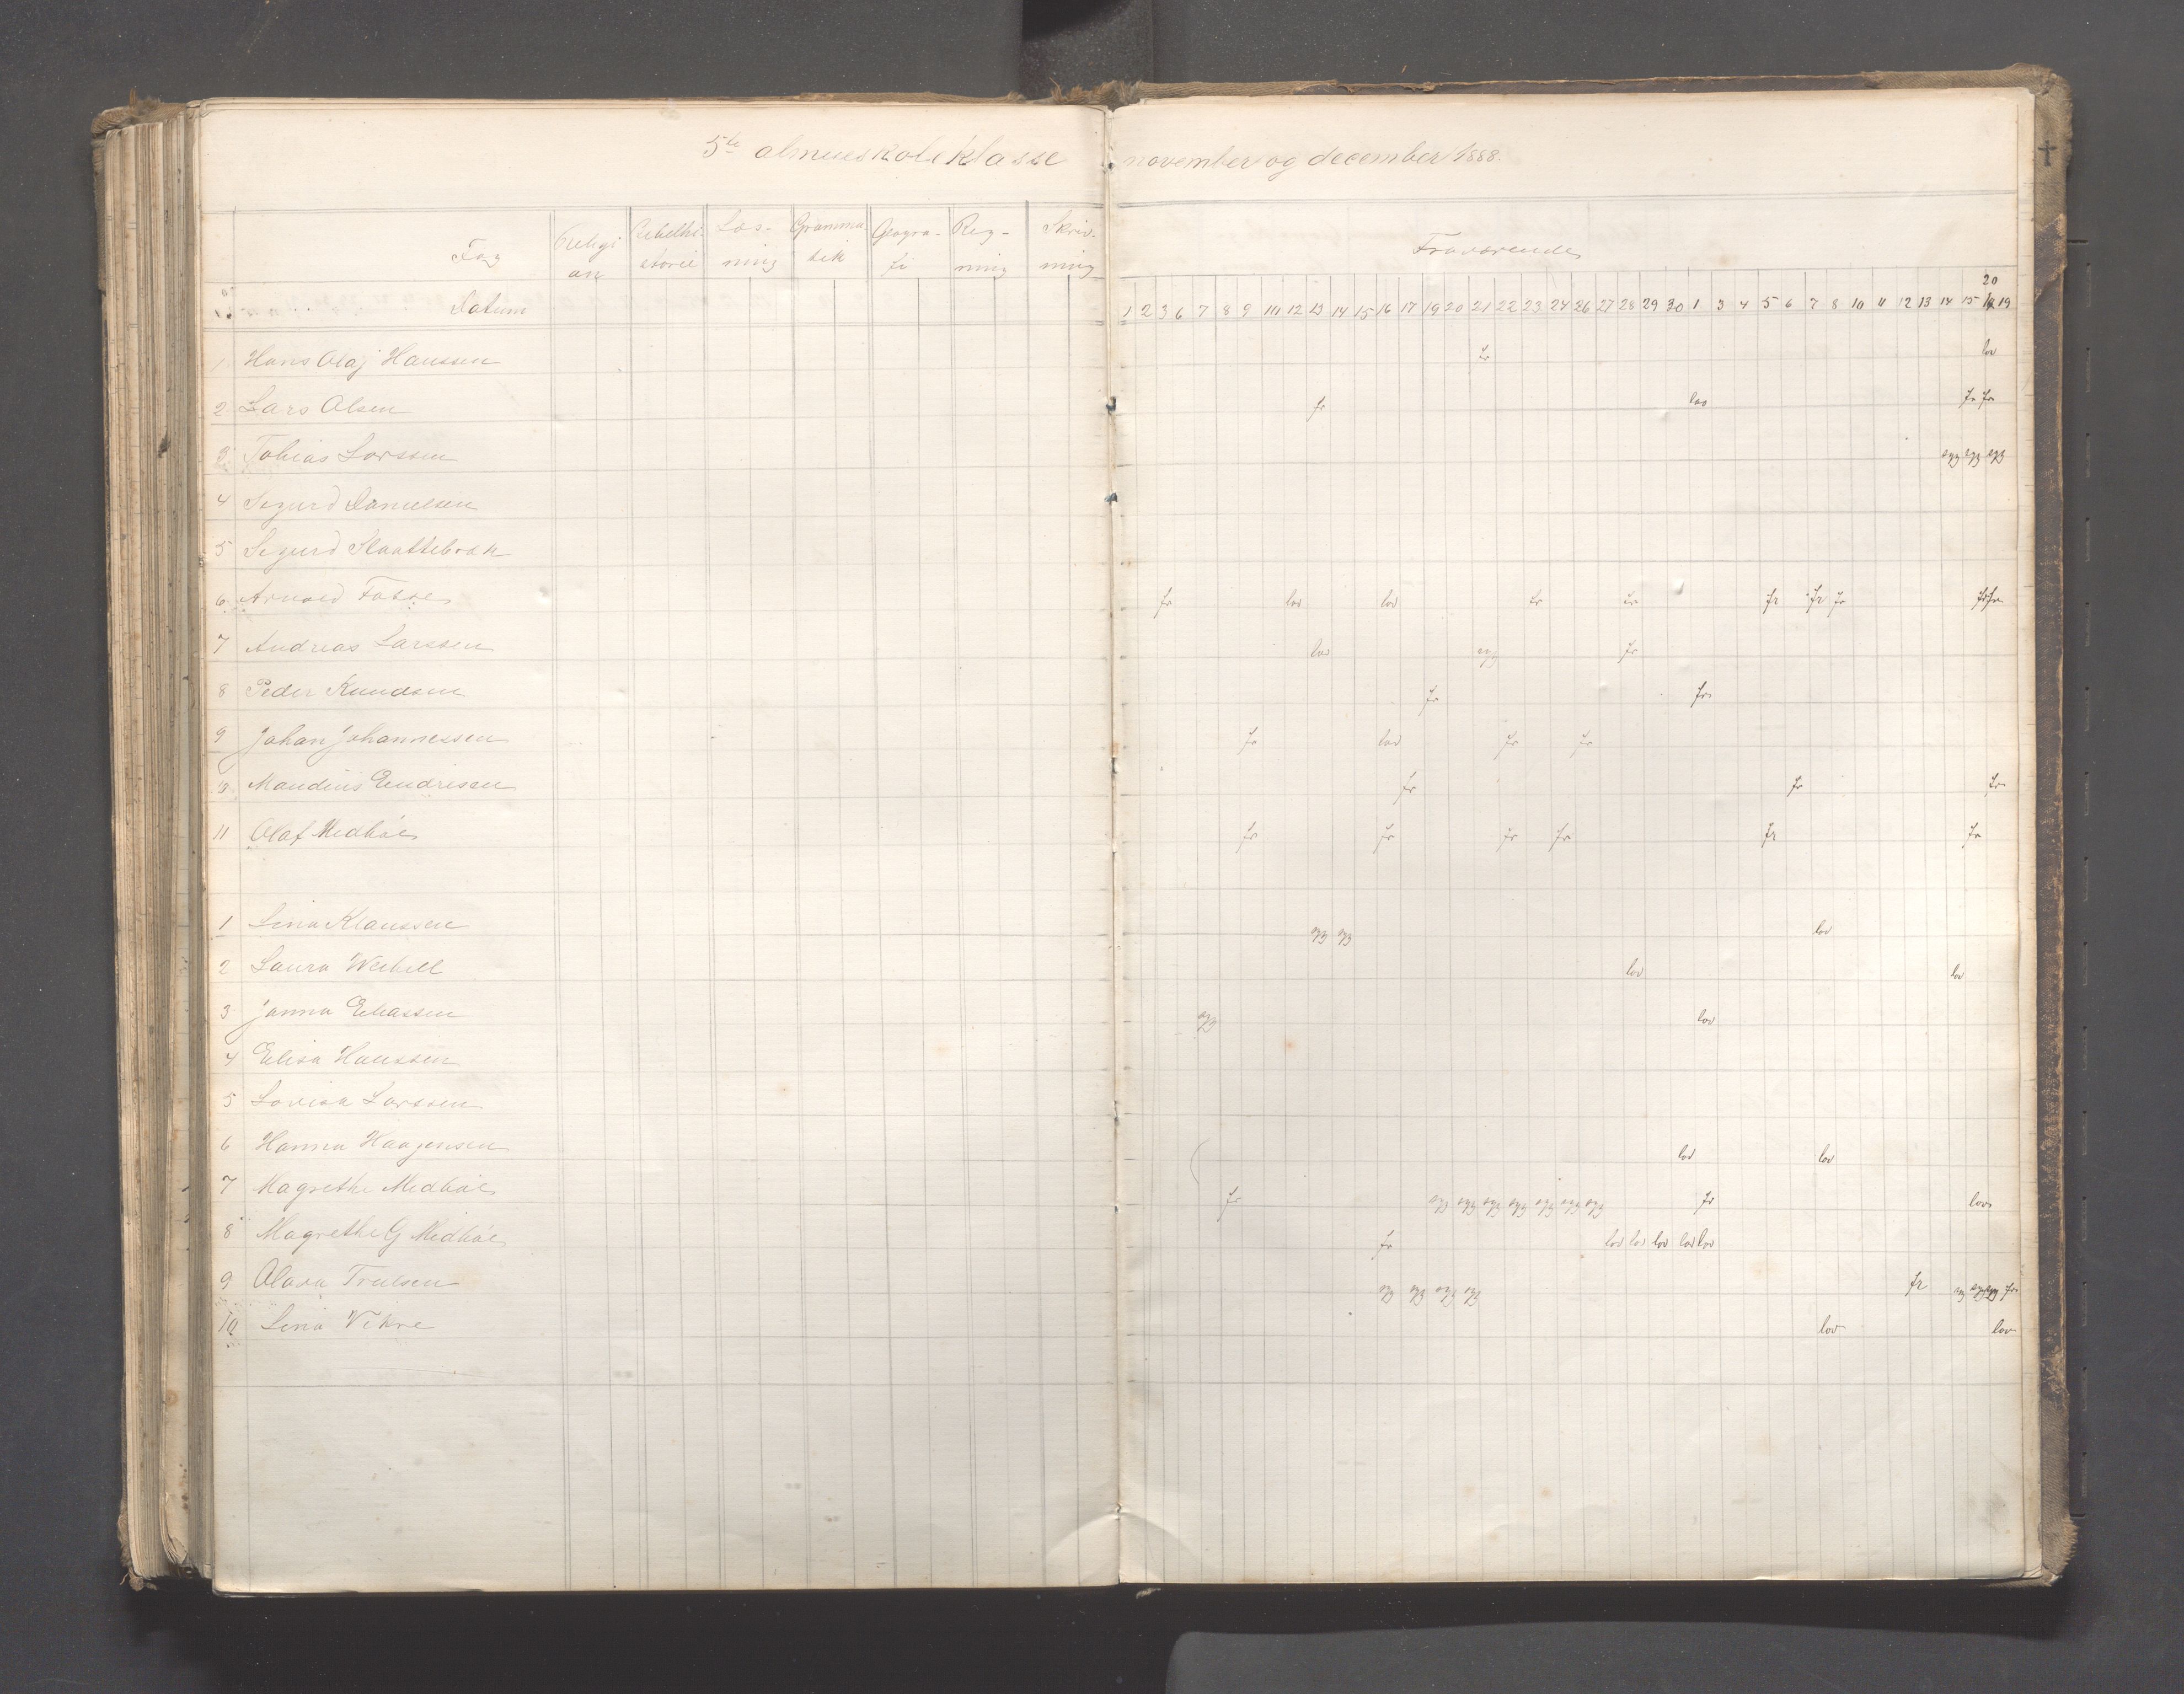 5te almueskoleklasse november og december 1888.
Fag Religi on Bibelhi- storie Læs- ning Gramma tik Geogra- fi Reg- ning Skriv- ning Fraværende
20
Datum 1 2 3 6 7 8 9 10 12 13 14 15 16 17 19 20 21 22 23 24 26 27 28 29 30 1 3 4 5 6 7 8 10 11 12 13 14 15 19
1 Hans Olaj Hanssen fr lov
2 Lars Olsen fr lov fr fr
3 Tobias Larssen syg syg syg
4 Sigurd Danielsen
5 Sigurd Slaattebræk
6 Arnold fr lov lov fr fr fr fr fr fr fr
7 Andreas Larssen lov syg fr
8 Peder Knudsen fr fr
9 Johan Johannessen fr lov fr fr
Mandius Endresen fr fr fr
11 Olaf Medbøe fr fr fr fr fr fr
1 Lina Klaussen syg syg lov
2 Laura lov lov
3 Janna Eliassen syg lov
4 Elisa Hanssen
5 Lovisa Larssen
6 Hanna Haagensen lov lov
7 Magrethe Medbøe fr syg syg syg syg syg syg syg fr lov
8 Magrethe G Medbøe fr lov lov lov lov lov
9 Olava Trulsen syg syg syg syg fr syg syg syg fr
10 Lina Vikre lov lov